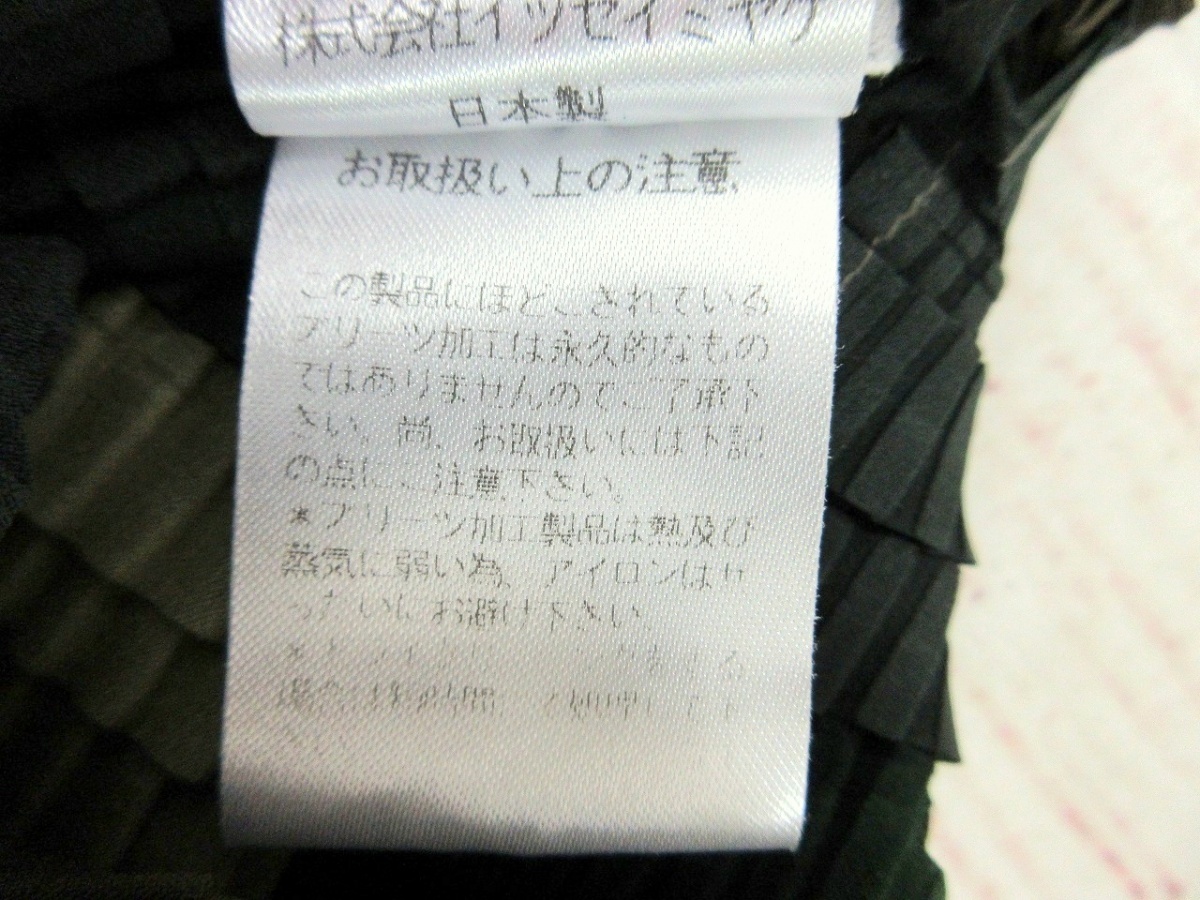 株式会社イッセイミヤケ
日本製
お取扱い上の注意
この製品にほどこされている
プリーツ加工は永久的なもの
ではありませんのでご了承下
さい。尚、お取扱いには下記
の点にご注意下さい。
＊プリーツ加工製品は熱及び
蒸気に弱い為、アイロンはぜ
ったいにお避け下さい